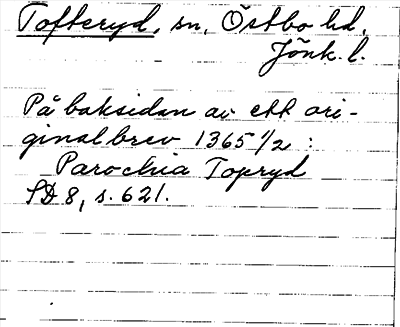 Tofteryd, sn, Östbo hd,
Jönk. l.
På baksidan av ett ori-
ginalbrev 1365 1/2 :
Parochia Topryd
SD 8, s. 621.